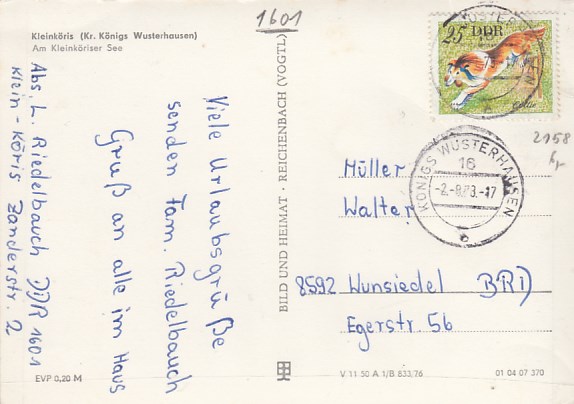 Kleinköris (Kr. Königs Wusterhausen)
Am Kleinköriser See
1601
Viele Urlaubsgrüße
senden Fam. Riedelbauch
Gruß an alle im Haus
Abs. L. Riedelbauch DDR 1601
Klein-Köris Zanderstr. 2
EVP 0,20 M
BILD UND HEIMAT · REICHENBACH (VOGTL)
25 DDR
Collie
KÖNIGS WUSTERHAUSEN
16
-2.-8.73.-17
b
2158
Müller
Walter
8592 Wunsiedel BRD
Egerstr. 56
V 11 50 A 1/B 833/76
01 04 07 370